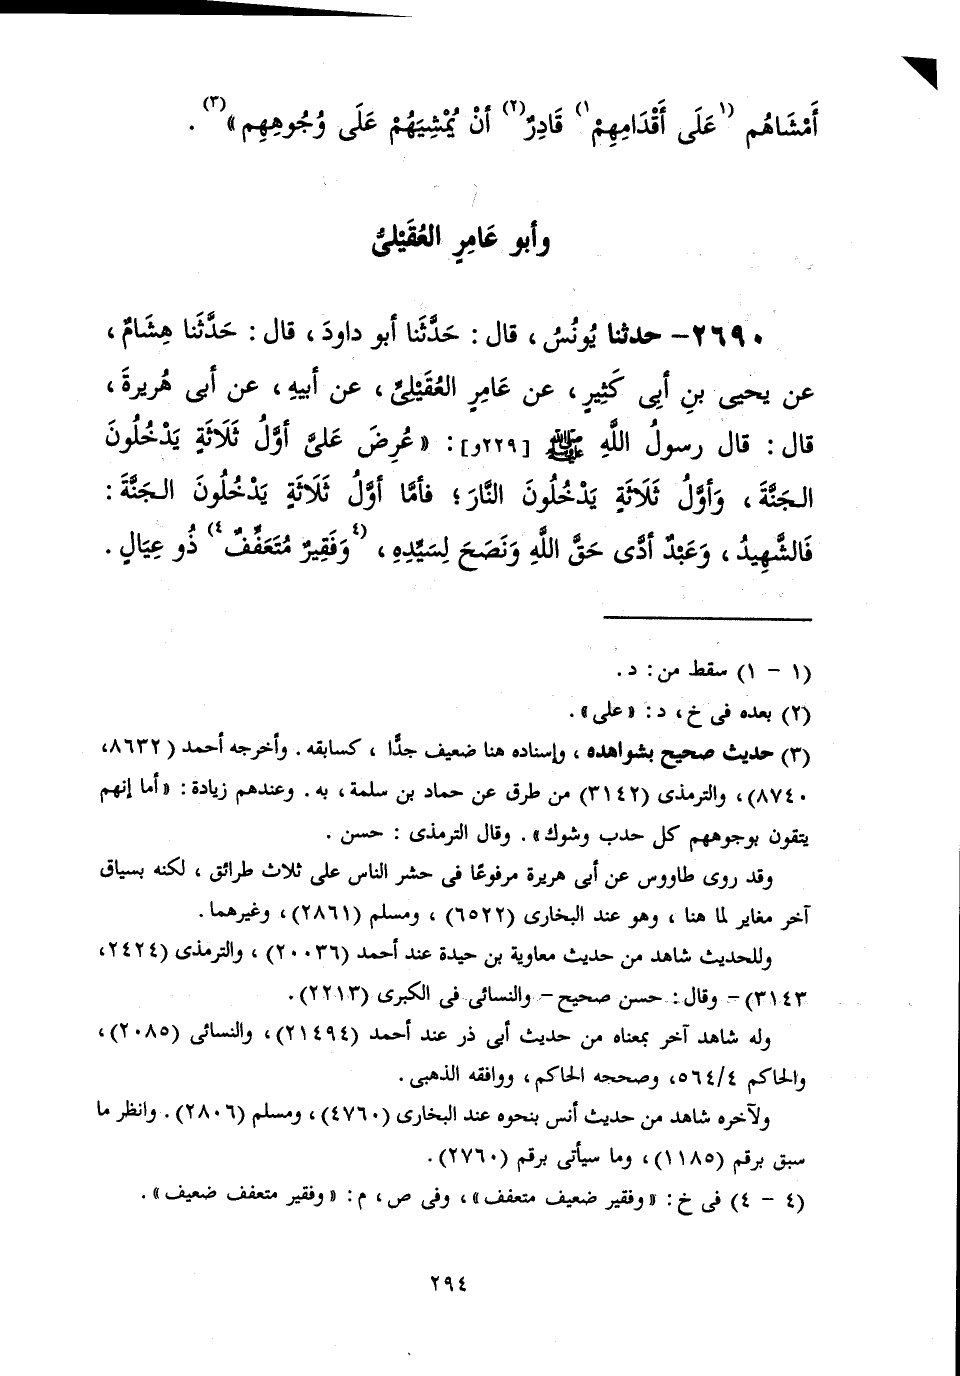 أَمْشَاهُم (١عَلَى أَقْدَامِهِمْ١) قَادِرٌ(٢) أَنْ يُمْشِيَهُمْ عَلَى وُجُوهِهِم»(٣) .
وأبو عَامِرٍ العُقَيْلِىُّ
٢٦٩٠- حدثنا يُونُسُ ، قال : حَدَّثَنا أبو داودَ ، قال : حَدَّثَنا هِشَامٌ ،
عن يحيى بنِ أَبِى كَثِيرٍ ، عن عَامِرٍ العُقَيْلِىِّ ، عن أَبيهِ ، عن أبى هُريرةَ ،
قال : قال رسولُ اللَّهِ ﷺ [٢٢٩و] : « عُرِضَ عَلىَّ أوَّلُ ثَلَاثَةٍ يَدْخُلُونَ
الجَنَّةَ ، وَأوَّلُ ثَلَاثَةٍ يَدْخُلُونَ النَّارَ ؛ فأمَّا أوَّلُ ثَلَاثَةٍ يَدْخُلُونَ الجَنَّةَ :
فَالشَّهِيدُ ، وَعَبْدٌ أدَّى حَقَّ اللَّهِ وَنَصَحَ لِسَيِّدِهِ ، (٤وَفَقِيرٌ مُتَعَفِّفٌ٤) ذُو عِيَالٍ .
(١ - ١) سقط من : د .
(٢) بعده فى خ ، د : « على » .
(٣) حديث صحيح بشواهده ، وإسناده هنا ضعيف جدًّا ، كسابقه . وأخرجه أحمد (٨٦٣٢،
٨٧٤٠) ، والترمذى (٣١٤٢) من طرق عن حماد بن سلمة ، به . وعندهم زيادة : « أما إنهم
يتقون بوجوههم كل حدب وشوك » . وقال الترمذى : حسن .
وقد روى طاووس عن أبى هريرة مرفوعًا فى حشر الناس على ثلاث طرائق ، لكنه بسياق
آخر مغاير لما هنا ، وهو عند البخارى (٦٥٢٢) ، ومسلم (٢٨٦١) ، وغيرهما .
وللحديث شاهد من حديث معاوية بن حيدة عند أحمد (٢٠٠٣٦) ، والترمذى (٢٤٢٤،
٣١٤٣) - وقال : حسن صحيح - والنسائى فى الكبرى (٢٢١٣) .
وله شاهد آخر بمعناه من حديث أبى ذر عند أحمد (٢١٤٩٤) ، والنسائى (٢٠٨٥) ،
والحاكم ٥٦٤/٤، وصححه الحاكم ، ووافقه الذهبى .
ولآخره شاهد من حديث أنس بنحوه عند البخارى (٤٧٦٠) ، ومسلم (٢٨٠٦) . وانظر ما
سبق برقم (١١٨٥) ، وما سيأتى برقم (٢٧٦٠) .
(٤ - ٤) فى خ : « وفقير ضعيف متعفف » ، وفى ص ، م : « وفقير متعفف ضعيف » .
٢٩٤